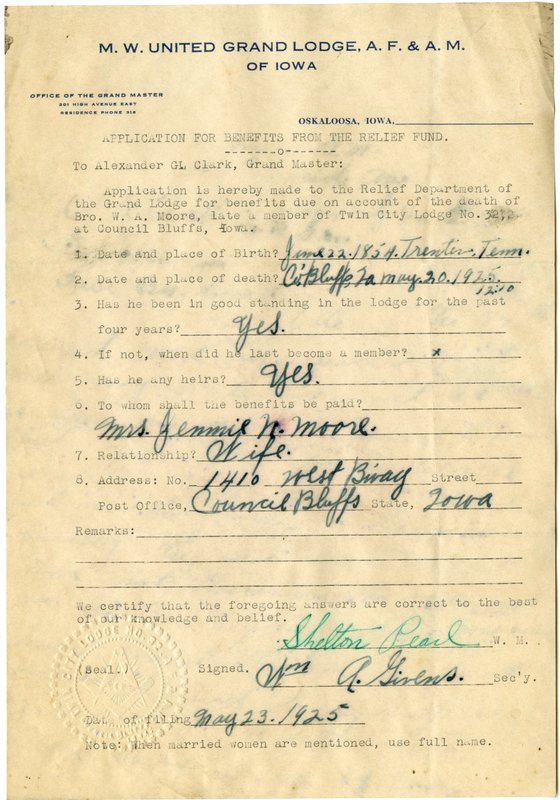 M. W. UNITED GRAND LODGE, A. F. & A. M.
OF IOWA
OFFICE OF THE GRAND MASTER
201 HIGH AVENUE EAST
RESIDENCE PHONE 318
OSKALOOSA, IOWA,
APPLICATION FOR BENEFITS FROM THE RELIEF FUND.
-------o-------
To Alexander GL Clark, Grand Master:
Application is hereby made to the Relief Department of
the Grand Lodge for benefits due on account of the death of
Bro. W. A. Moore, late a member of Twin City Lodge No.
at Council Bluffs, Iowa.
1. Date and place of Birth? June 22. 1854. Trentin. Tenn.
2. Date and place of death? Co Bluffs Ia May. 20. 1925.
12:10
3. Has he been in good standing in the lodge for the past
four years? Yes.
4. If not, when did he last become a member? x
5. Has he any heirs? Yes.
6. To whom shall the benefits be paid?
Mrs. Jennie W. Moore.
7. Relationship? Wife.
8. Address: No. 1410 West Bway Street
Post Office, Council Bluffs State, Iowa
Remarks:
We certify that the foregoing answers are correct to the best
of our knowledge and belief.
Shelton Pearl W. M.
(Seal.) Signed. Wm A. Givens. Sec'y.
Date of filing May 23. 1925
Note: When married women are mentioned, use full name.